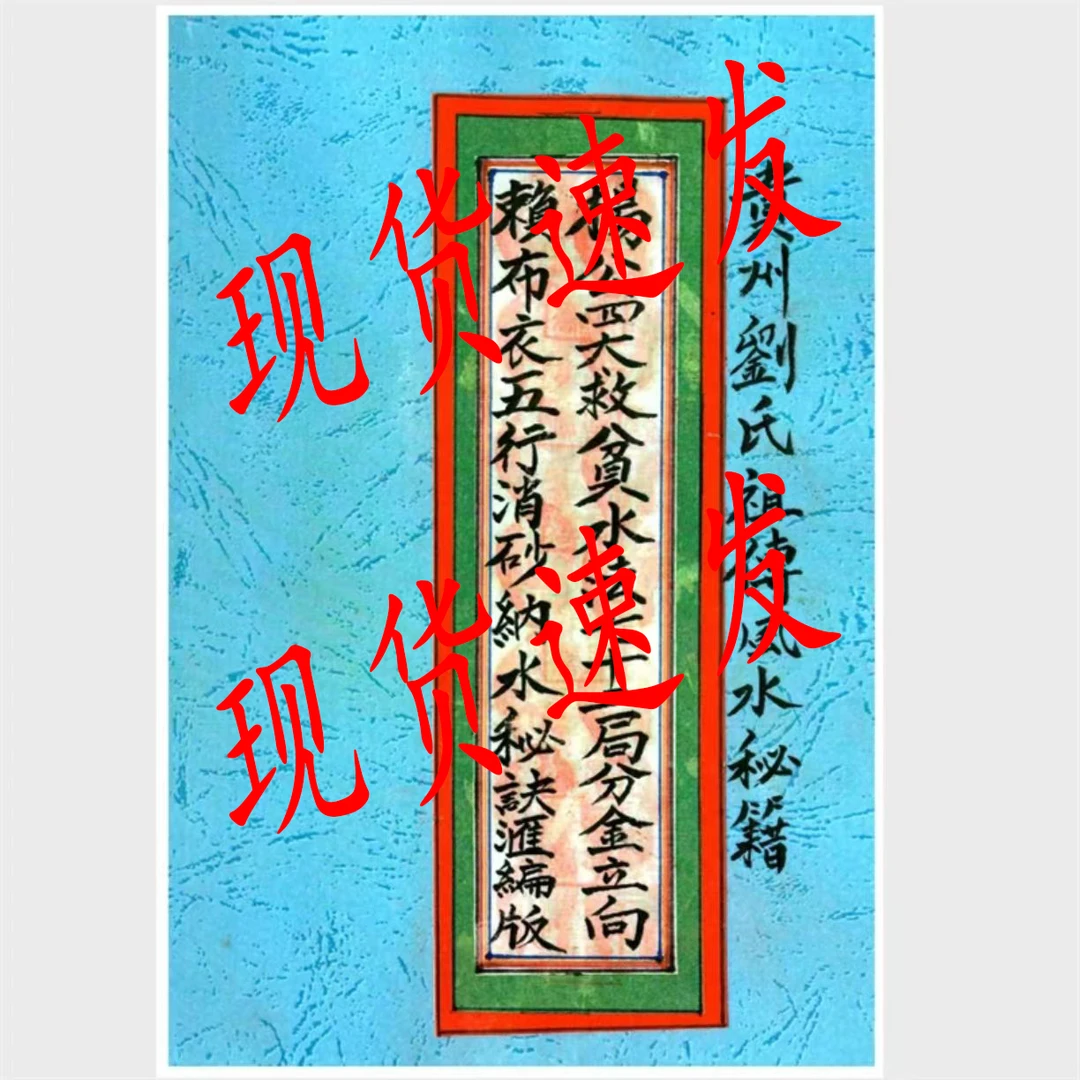 貴州劉氏祖傳風水秘籍
楊公四大救貧水法七十二局分金立向
賴布衣五行消砂納水秘訣匯編版
现货速发
现货速发